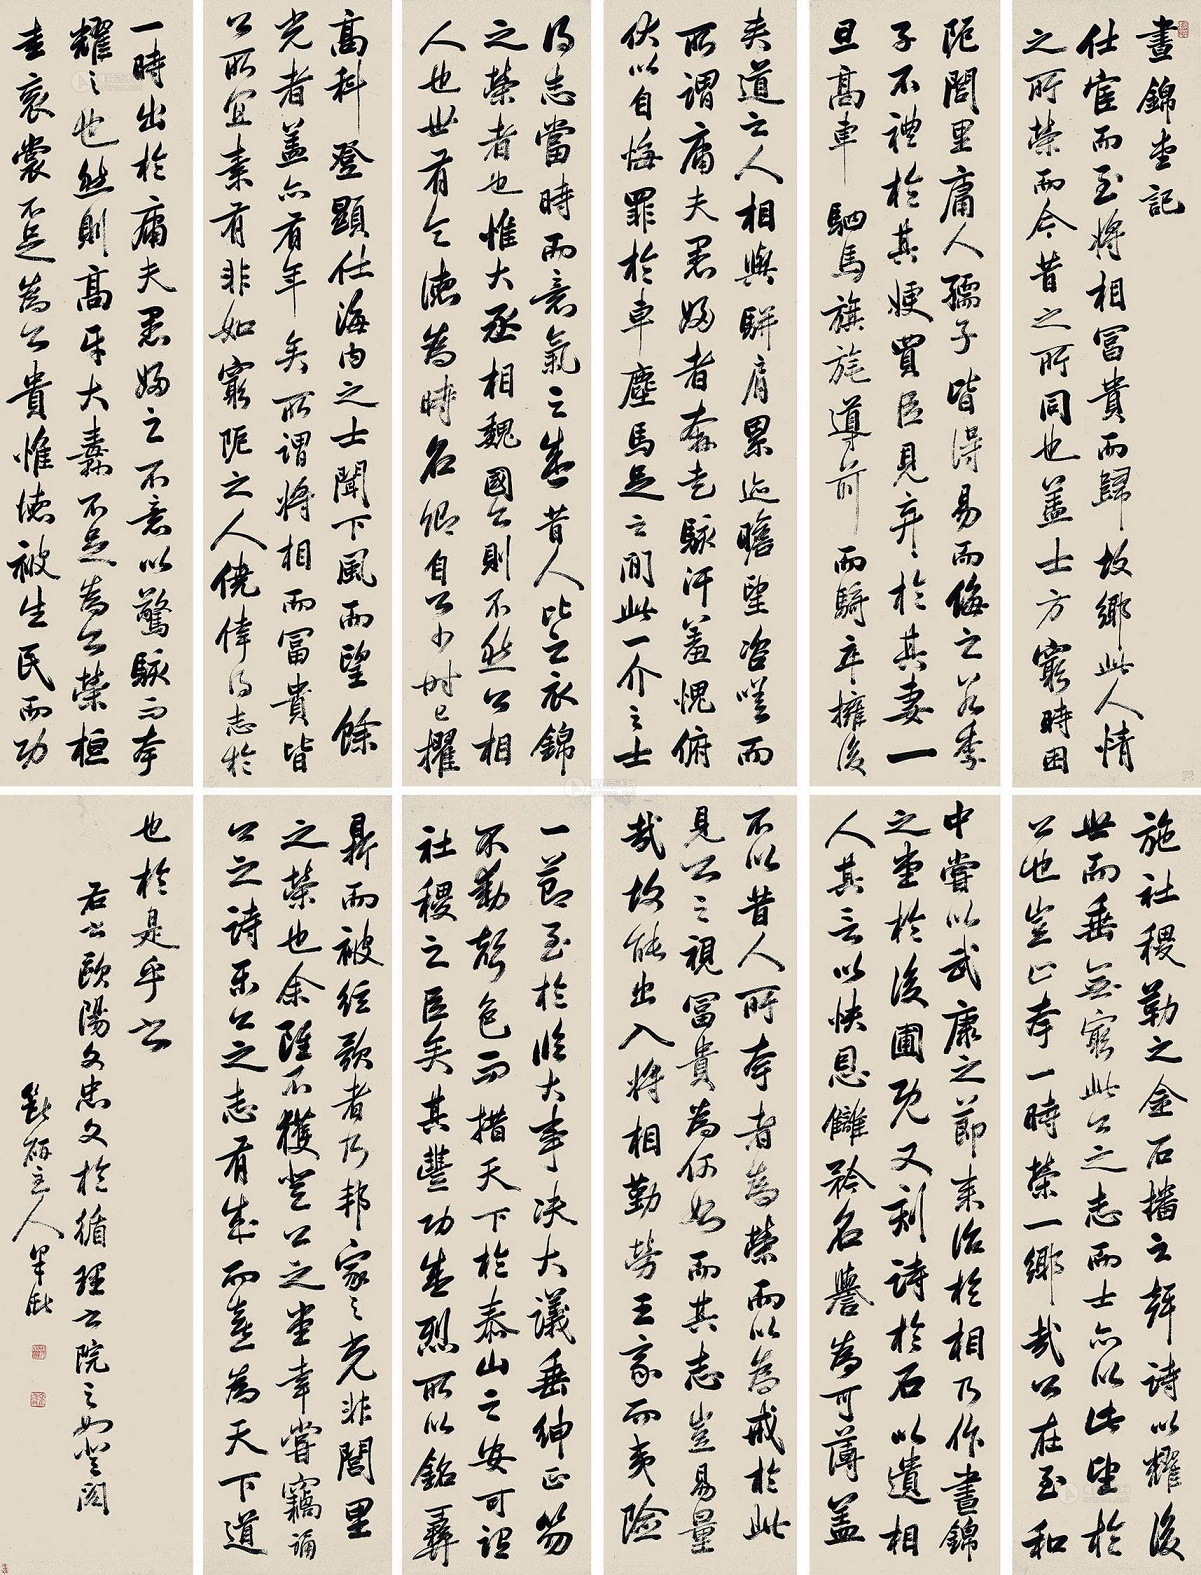 晝錦堂記
仕宦而至將相富貴而歸故鄉此人情
之所榮而今昔之所同也蓋士方窮時困
阨閭里庸人孺子皆得易而侮之若季
子不禮於其嫂買臣見棄於其妻一
旦高車駟馬旗旄導前而騎卒擁後
夾道之人相與駢肩累迹瞻望咨嗟而
所謂庸夫愚婦者奔走駭汗羞愧俯
伏以自悔罪於車塵馬足之間此一介之士
得志當時而意氣之盛昔人比之衣錦
之榮者也惟大丞相魏國公則不然公相
人也世有令德為時名卿自公少時已擢
高科登顯仕海內之士聞下風而望餘
光者蓋亦有年矣所謂將相而富貴皆
公所宜素有非如窮阨之人僥倖得志於
一時出於庸夫愚婦之不意以驚駭而夸
耀之也然則高牙大纛不足為公榮桓
圭袞裳不足為公貴惟德被生民而功
施社稷勒之金石播之聲詩以耀後
世而垂無窮此公之志而士亦以此望於
公也豈止夸一時榮一鄉哉公在至和
中嘗以武康之節來治於相乃作晝錦
之堂於後圃既又刻詩於石以遺相
人其言以快恩讎矜名譽為可薄蓋
不以昔人所夸者為榮而以為戒於此
見公之視富貴為何如而其志豈易量
哉故能出入將相勤勞王家而夷險
一節至於臨大事決大議垂紳正笏
不動聲色而措天下於泰山之安可謂
社稷之臣矣其豐功盛烈所以銘彝
鼎而被絃歌者乃邦家之光非閭里
之榮也余雖不獲登公之堂幸嘗竊誦
公之詩樂公之志有成而喜為天下道
也於是乎書
右書歐陽文忠文於循理書院之如登閣
硯主人